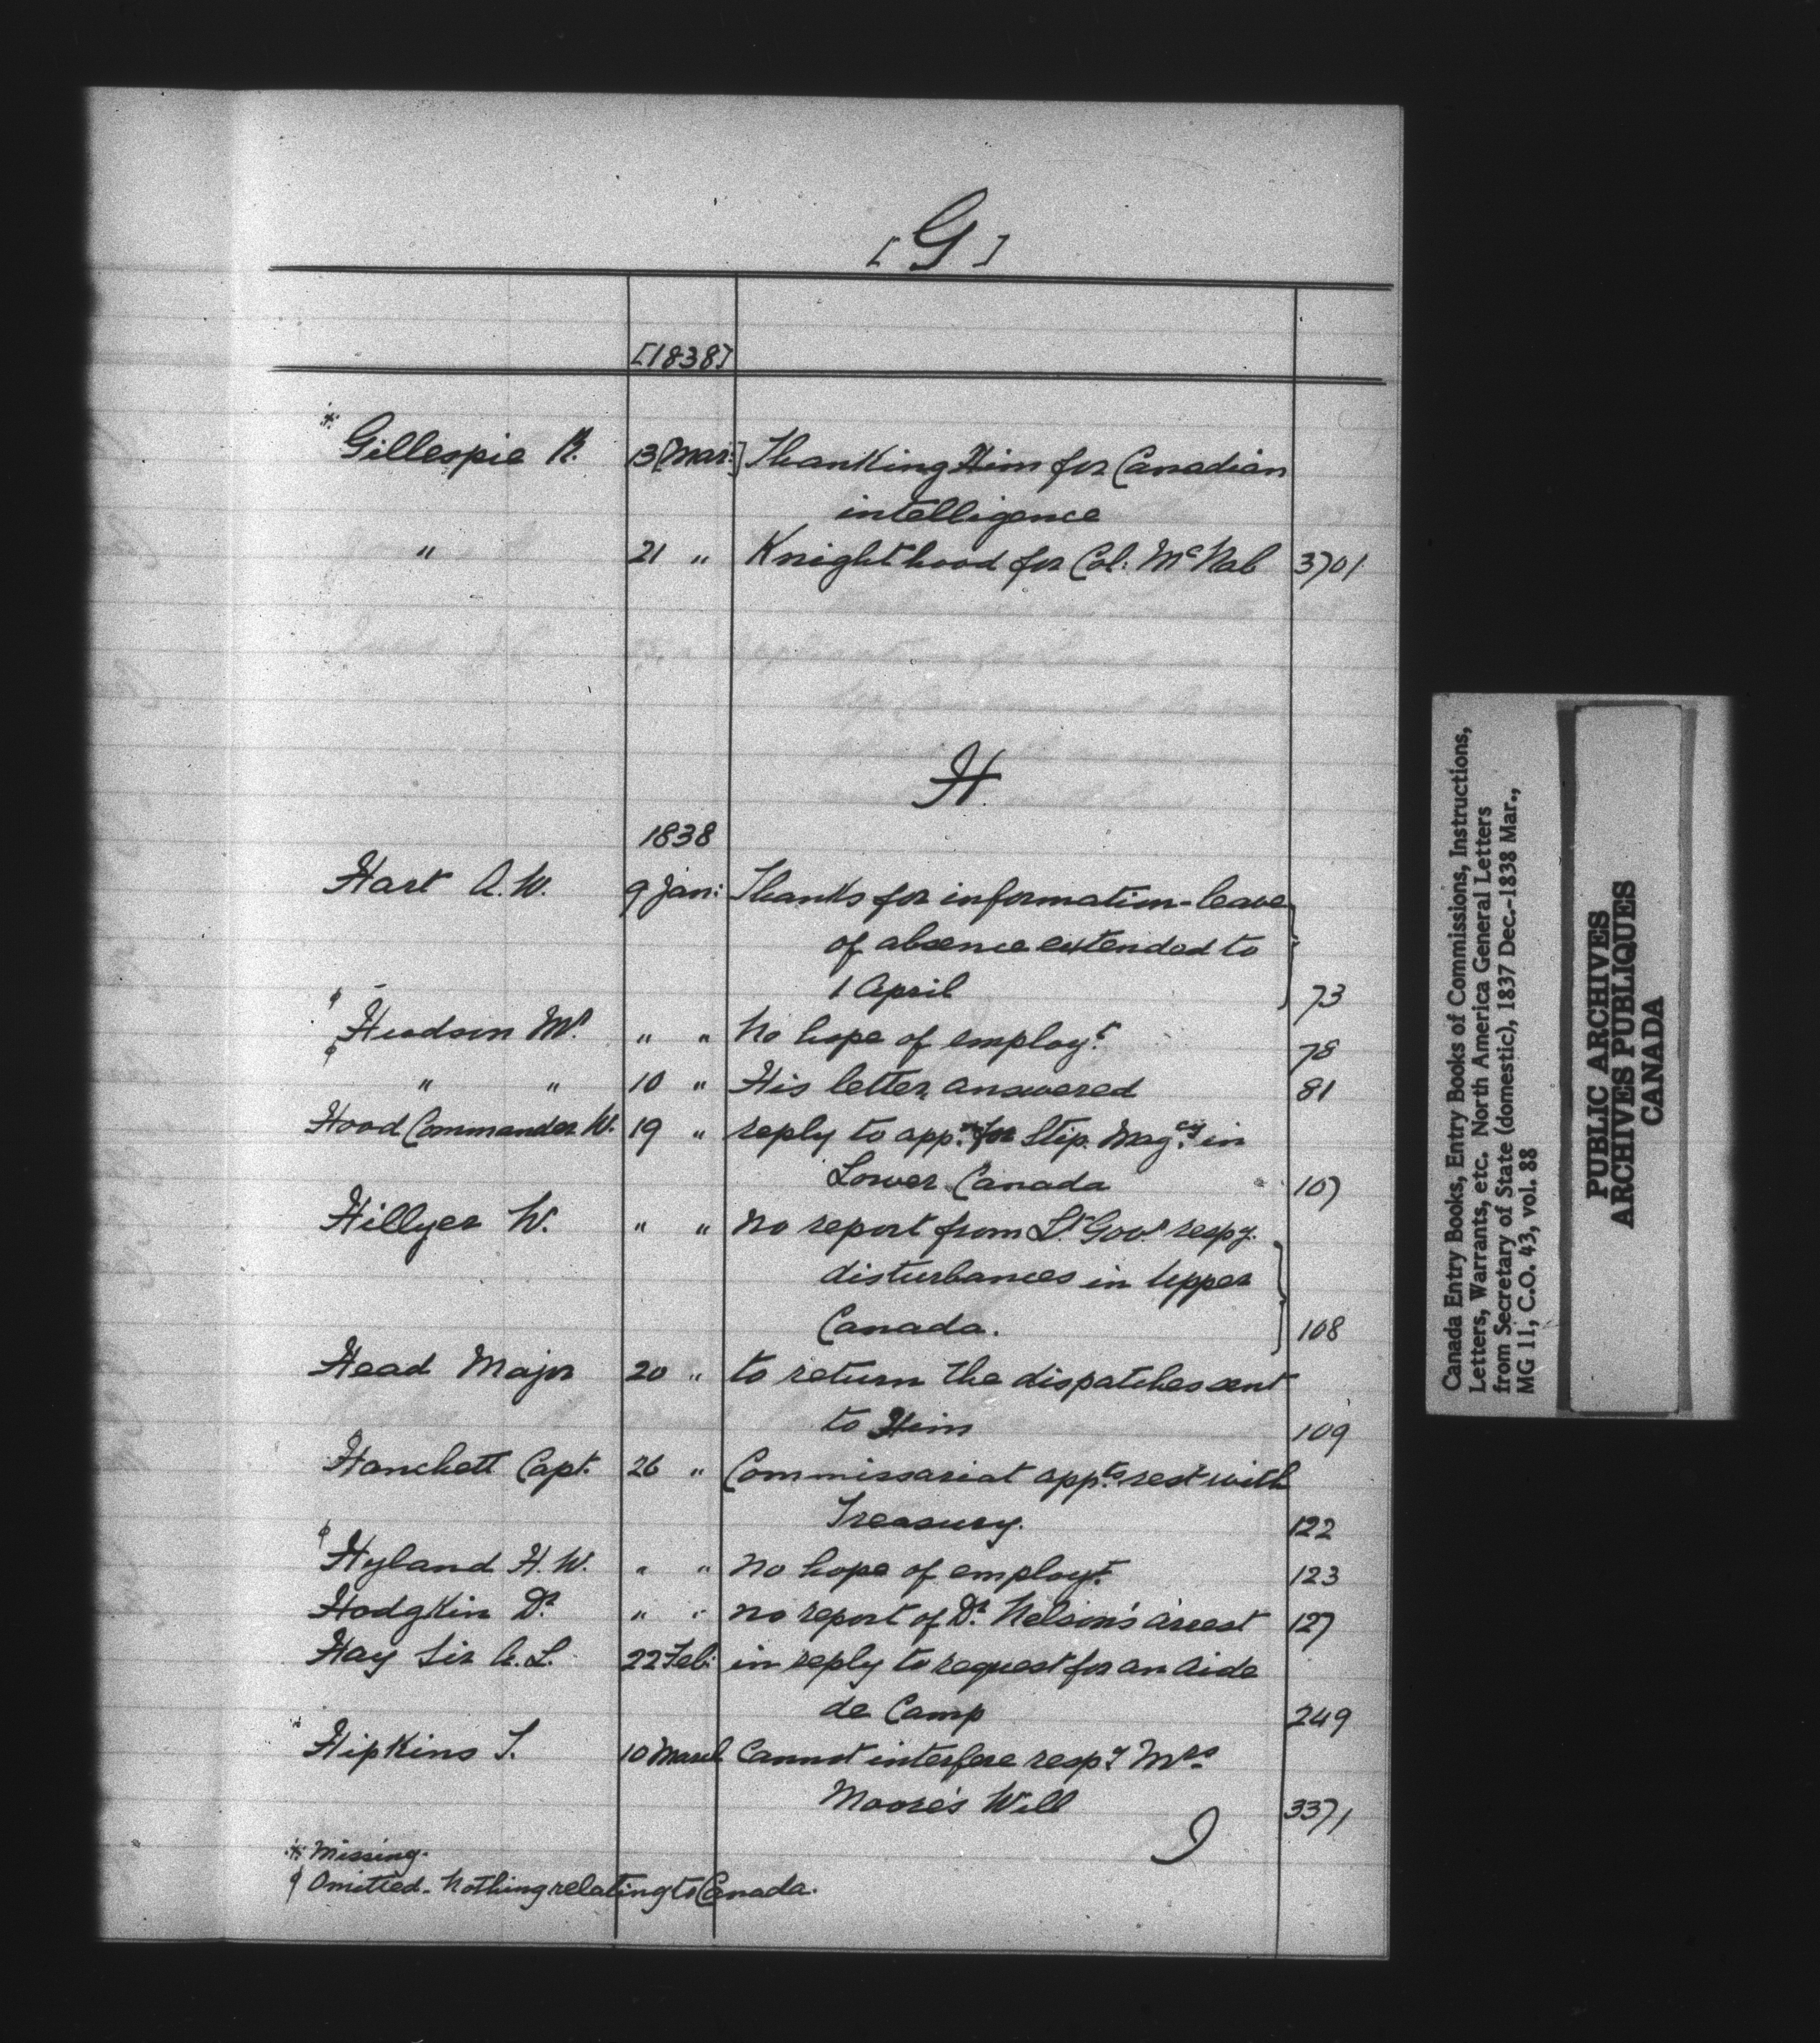 [G]
[1838]
Gillespie R. 13 [Mar:] Thanking Him for Canadian
intelligence
" 21 " Knighthood for Col: McNab 3701
H.
1838
Hart A.W. 9 Jan: Thanks for information - leave
of absence extended to
1 April 73
φ Hudson Mr. " " No hope of employt. 78
φ " " 10 " His letter answered 81
Hood Commander W. 19 " reply to appn. for Stip. Magcy. in
Lower Canada 107
Hillyer W. " " No report from Lt. Govr. respg.
disturbances in Upper
Canada. 108
Head Major 20 " to return the dispatches sent
to Him 109
Hanchett Capt. 26 " Commissariat appts. rest with
Treasury. 122
φ Hyland H.W. " " No hope of employt. 123
Hodgkin Dr. " " no report of Dr. Nelson's arrest 127
Hay Sir A.L. 22 Feb: in reply to request for an Aide
de Camp 249
Hipkins T. 10 March Cannot interfere respg. Mrs.
Moore's Will 3371
⁜ Missing.
φ Omitted - Nothing relating to Canada.
Canada Entry Books, Entry Books of Commissions, Instructions,
Letters, Warrants, etc. North America General Letters
from Secretary of State (domestic), 1837 Dec.-1838 Mar.,
MG 11, C.O. 43, vol. 88
PUBLIC ARCHIVES
ARCHIVES PUBLIQUES
CANADA